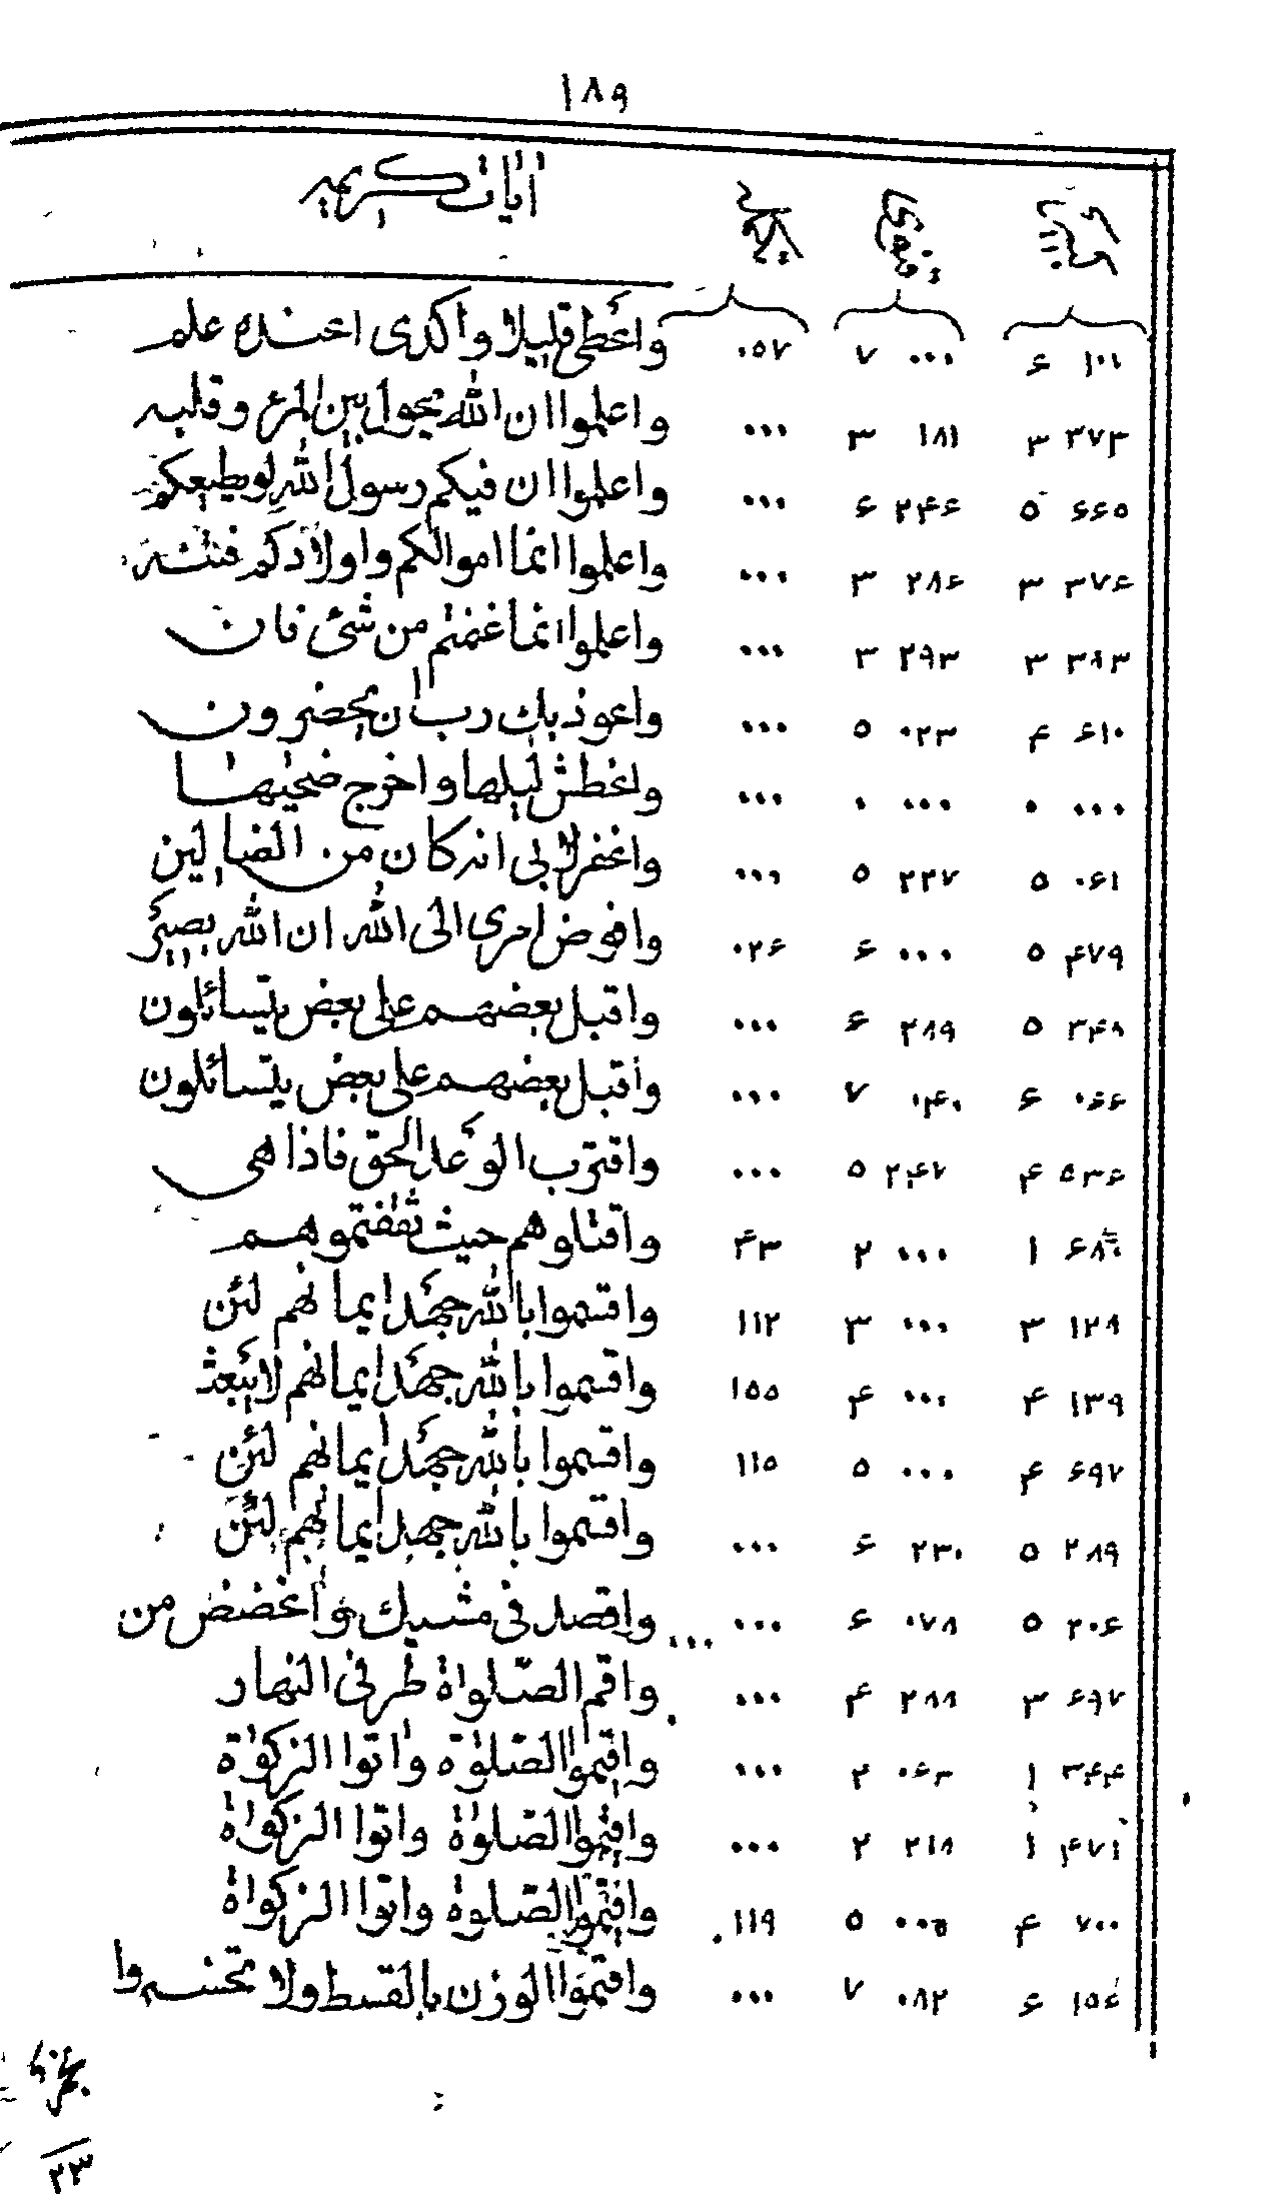 ۱۸۹
آیات کریمه
۱۰۱ ۶ ۰۰۰ ۷ ۰۵۷ واعطی قلیلا واکدی اعنده علم
۳۷۳ ۳ ۱۸۱ ۳ ۰۰۰ واعلموا ان الله یحول بین المرء وقلبه
۶۶۵ ۵ ۲۴۶ ۶ ۰۰۰ واعلموا ان فیکم رسول الله لو یطیعکم
۳۷۶ ۳ ۲۸۶ ۳ ۰۰۰ واعلموا انما اموالکم واولادکم فتنة
۳۸۳ ۳ ۲۹۳ ۳ ۰۰۰ واعلموا انما غنمتم من شئ فان
۶۱۰ ۴ ۰۲۳ ۵ ۰۰۰ واعوذ بك رب ان یحضرون
۰۰۰ ۰ ۰۰۰ ۰ ۰۰۰ واغطش لیلها واخرج ضحیها
۰۶۱ ۵ ۲۲۷ ۵ ۰۰۰ واغفر لابی انه کان من الضالین
۴۷۹ ۵ ۰۰۰ ۶ ۰۲۶ وافوض امری الی الله ان الله بصیر
۳۴۸ ۵ ۲۸۹ ۶ ۰۰۰ واقبل بعضهم علی بعض یتسائلون
۰۶۶ ۶ ۰۴۰ ۷ ۰۰۰ واقبل بعضهم علی بعض یتسائلون
۵۳۶ ۴ ۲۴۷ ۵ ۰۰۰ واقترب الوعد الحق فاذا هی
۶۸۰ ۱ ۰۰۰ ۲ ۴۳ واقتلوهم حیث ثقفتموهم
۱۲۸ ۳ ۰۰۰ ۳ ۱۱۲ واقسموا بالله جهد ایمانهم لئن
۱۳۹ ۴ ۰۰۰ ۴ ۱۵۵ واقسموا بالله جهد ایمانهم لا یبعث
۶۹۷ ۴ ۰۰۰ ۵ ۱۱۵ واقسموا بالله جهد ایمانهم لئن
۲۸۹ ۵ ۲۳۰ ۶ ۰۰۰ واقسموا بالله جهد ایمانهم لئن
۲۰۶ ۵ ۰۷۸ ۶ ۰۰۰ واقصد فی مشیك واغضض من
۶۹۷ ۳ ۲۸۸ ۴ ۰۰۰ واقم الصلواة طرفی النهار
۳۴۴ ۱ ۰۶۳ ۲ ۰۰۰ واقیموا الصلوة واتوا الزکوة
۴۷۱ ۱ ۲۱۸ ۲ ۰۰۰ واقیموا الصلوة واتوا الزکواة
۷۰۰ ۴ ۰۰۵ ۵ ۱۱۹ واقیموا الصلوة واتوا الزکواة
۱۵۶ ۶ ۰۸۲ ۷ ۰۰۰ واقیموا الوزن بالقسط ولا تخسروا
۲۳